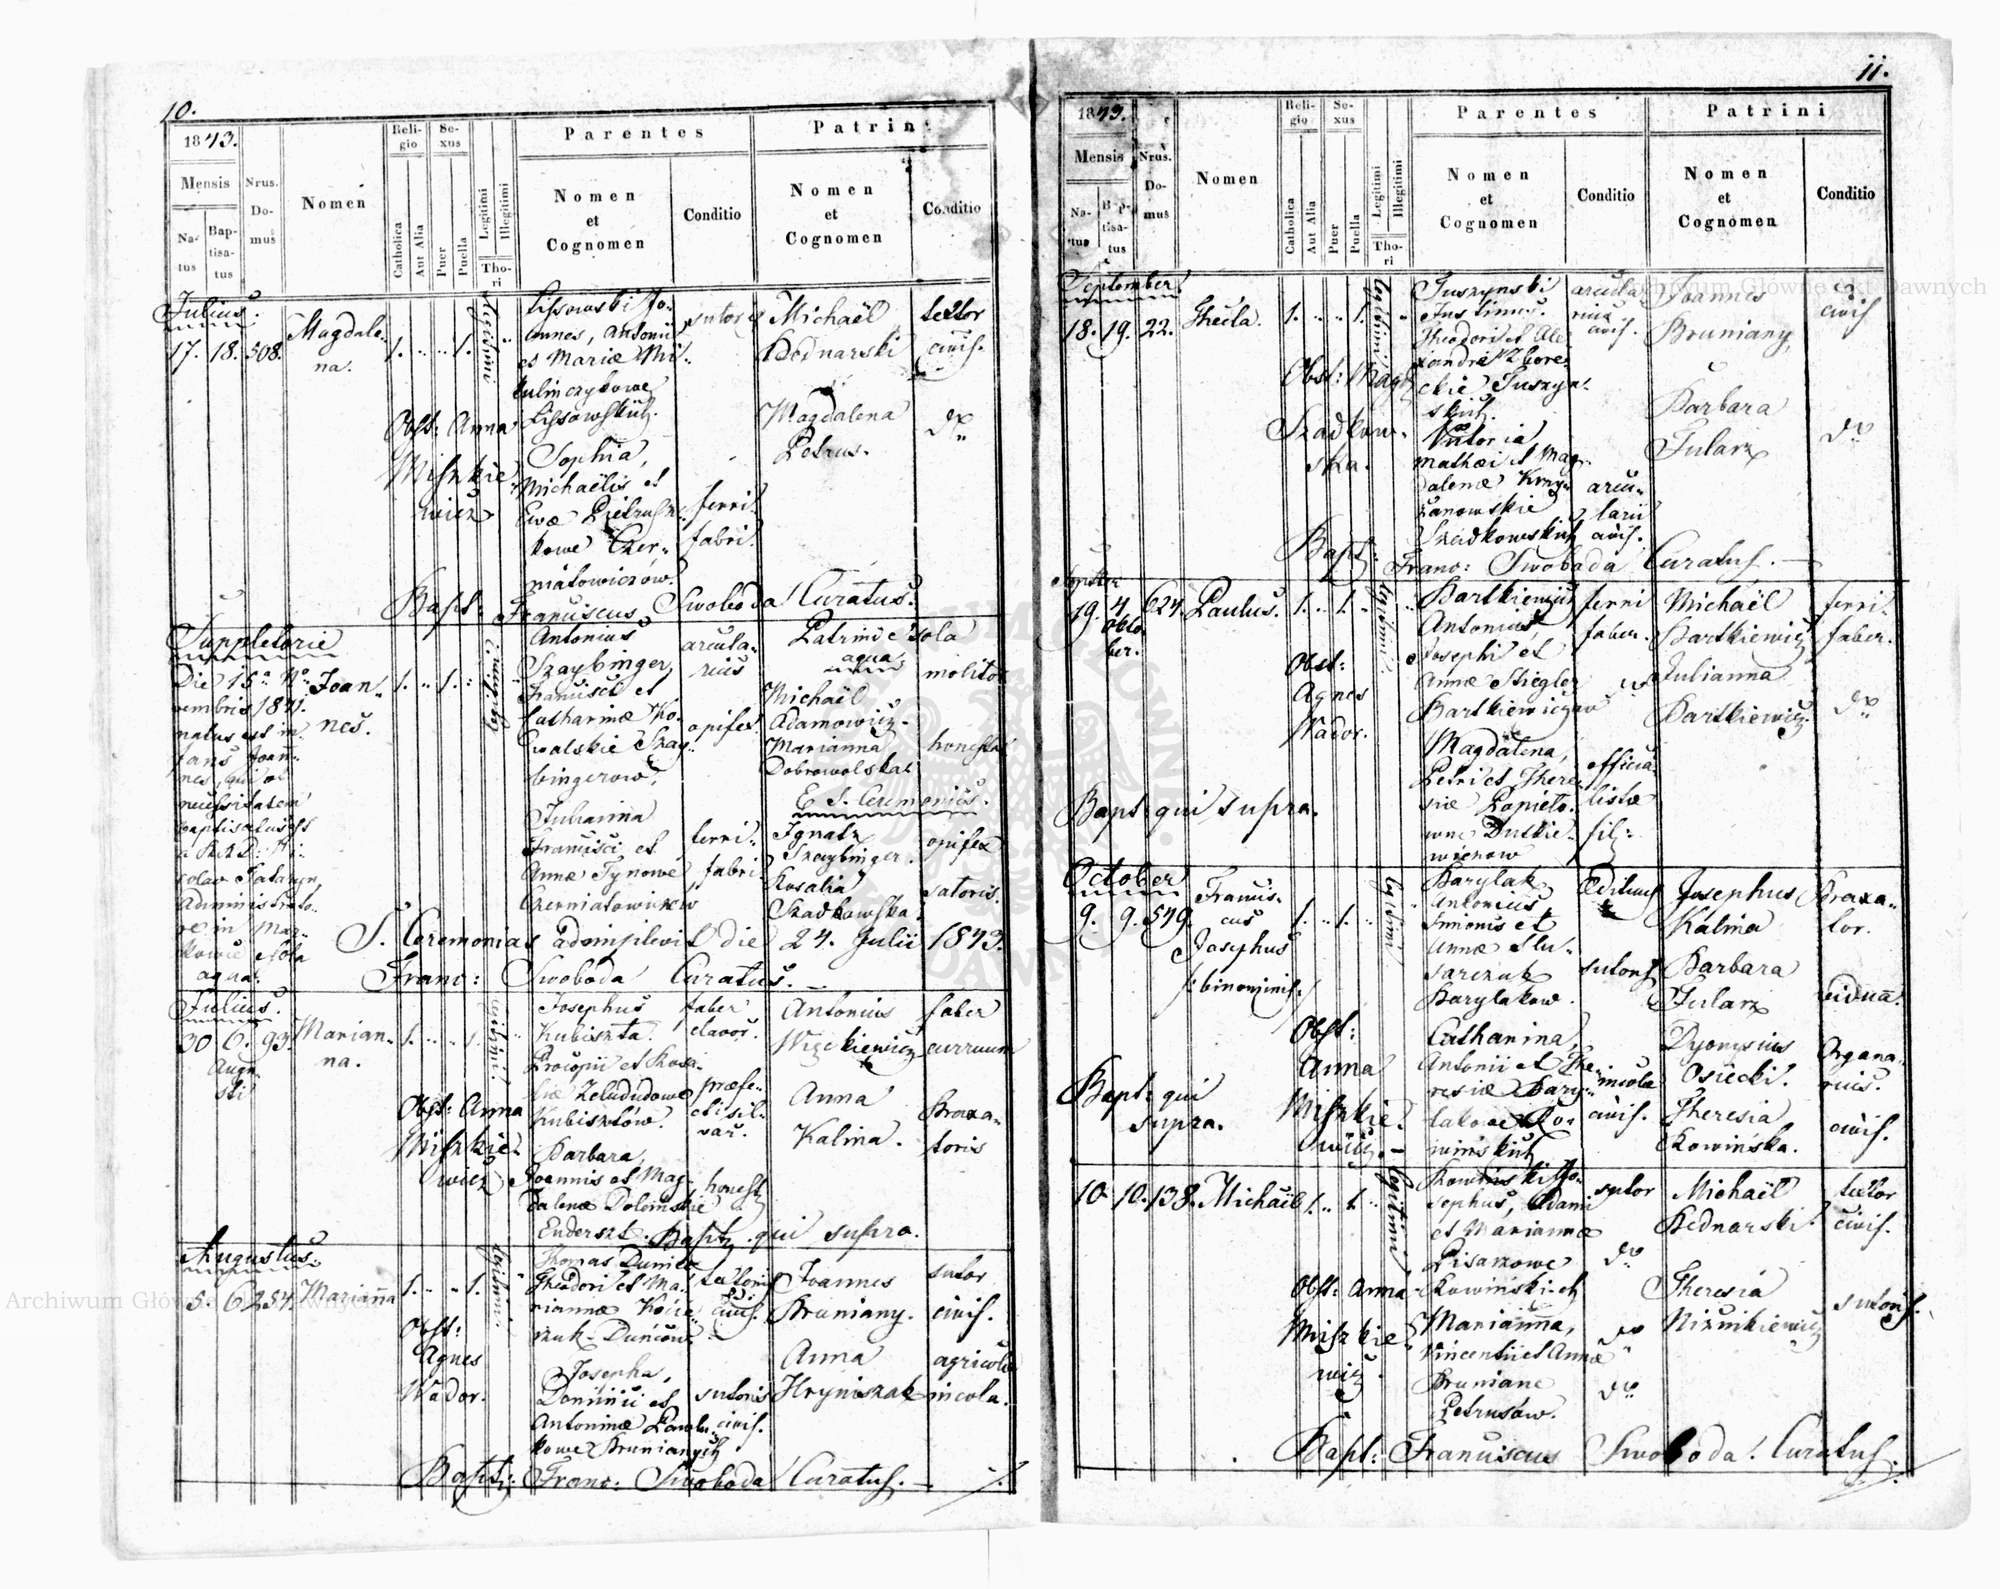 10.
1843.
Mensis
Na-
tus
Bap-
tisa-
tus
Nrus.
Do-
mus
Nomen
Reli-
gio
Catholica
Aut Alia
Se-
xus
Puer
Puella
Legitimi
Illegitimi
Tho-
ri
Parentes
Nomen
et
Cognomen
Conditio
Patrini
Nomen
et
Cognomen
Conditio
Julius.
17. 18. 508.
Magdale-
na.
1. .. .. 1.
legitimi
Obst: Anna
Miszkie-
wicz
Lissowski Jo-
annes, Antonii
et Mariæ Mi-
kulinczykowe
Lissowskich.
Sophia,
Michaëlis et
Ewæ Pietrusz-
kowe Czer-
niatowiczów.
sutor
ferri-
fabri.
Michaël
Bednarski
Magdalena
Petrus.
textor
civis.
dto
Bapt: Franciscus Swoboda Curatus.
Suppletorie
Die 15a No-
vembris 1841.
natus est in-
fans Joan-
nes, qui ob
necessitatem
baptisatus est
Administrato-
re in Mar-
kowce sola
aqua.
Joan-
nes.
1. .. 1. ..
legitimi
Antonius
Szaybinger,
Francisci et
Catharinæ Ko-
walskie Szay-
bingerow.
Julianna
Francisci et
Annæ Tynowe
Czerniatowiczow
arcula-
rius
opifex.
ferri-
fabri
Patrini e sola
aqua
Michaël
Adamowicz.
Marianna
Dobrowolska.
E S. Ceremoniis.
Ignatz
Szaybinger.
Rosalia
Szadkowska.
molitor
honesta
opifex
satoris.
S. Ceremonias adimplevit die 24. Julii 1843.
Franc: Swoboda Curatus.
Julius.
30 6. 93.
Augu-
sti
Marian-
na.
1. .. .. 1.
legitimi.
Obst: Anna
Miszkie-
wicz
Josephus
Kubiszta.
Procopii et Rosa-
liæ Zelududowe
Kubisztów.
Barbara,
Joannis et Mag-
dalenæ Dolemskie
Enderszt.
faber
clavor.
præfe-
cti sil-
var.
honest
Antonius
Więckiewicz
Anna
Kalina.
faber
curruum
Braxa-
toris
Bapt. qui supra.
Augustus.
5. 6. 254.
Marianna
1. .. .. 1.
legitimi.
Obst:
Agnes
Wador.
Thomas Duniec
Theodori et Ma-
riannæ
Duńców.
Josepha,
Dominici et
Antoninæ Pawlu-
kowe Brunianych
textoris
civis.
sutoris
civis.
Joannes
Bruniany.
Anna
Hryniszak
sutor
civis.
agricola
incola.
Bapt: Franc: Swoboda Curatus.
11.
1843.
Mensis
Na-
tus
Bap-
tisa-
tus
Nrus.
Do-
mus
Nomen
Reli-
gio
Catholica
Aut Alia
Se-
xus
Puer
Puella
Legitimi
Illegitimi
Tho-
ri
Parentes
Nomen
et
Cognomen
Conditio
Patrini
Nomen
et
Cognomen
Conditio
September
18. 19. 22.
Thecla.
1. .. .. 1.
legitimi
Obst: Magd
Szadkow-
ska.
Tuszynski
Justinus.
Theodori et Ale-
xandræ Zbore-
ckie Tuszyn-
skich.
Victoria
Mathæi et Mag-
dalenæ Krzy-
żanowskie
Szadkowskich
arcula-
rius
civis.
arcu-
larii
civis.
Joannes
Bruniany,
Barbara
Fularz
civis
dto
Bapt: Franc: Swoboda Curatus.
September
19. 4. 624.
Octo-
ber.
Paulus.
1. .. 1. ..
legitimi
Obst:
Agnes
Wador.
Bartkiewicz
Antonius,
Josephi et
Annæ Stiegler
Bartkiewiczow
Magdalena,
Petri et There-
siæ Lapieto-
wne Dutkie-
wiczow
ferri
faber.
officia-
listæ
fil:
Michaël
Bartkiewicz
Julianna
Bartkiewicz
ferri-
faber.
dto
Bapt: qui supra.
October
9. 9. 549.
Francis-
cus
Josephus
/:binominis:/
1. .. 1. ..
legitimi
Obst:
Anna
Miszkie-
wicz.
Barylak
Antonius
Simonis et
Annæ Slu-
sarczuk
Barylakow.
Catharina,
Antonii et The-
resiæ Bary-
lakowe Ko-
wińskich
Ædituus
sutoris
incolæ
civis.
Josephus
Kalina
Barbara
Fularz
Dyonysius
Osiecki.
Theresia
Kowińska.
Braxa-
tor.
vidua.
Organa-
rius.
civis.
Bapt: qui
supra.
10. 10. 138.
Michaël
1. .. 1. ..
legitimi
Obst: Anna
Miszkie-
wicz.
Kowinski Jo-
sephus, Adami
et Mariannæ
Pisarzowe
Kowinskich
Marianna,
Vincentii et Annæ
Bruniane
Petrusów.
sutor
dto
dto
dto
Michaël
Bednarski.
Theresia
Niżnikiewicz
textor
civis.
sutoris.
Bapt: Franciscus Swoboda Curatus.
Archiwum Główne Akt Dawnych
Archiwum Główne Akt Dawnych
ARCHIWUM GŁÓWNE AKT DAWNYCH